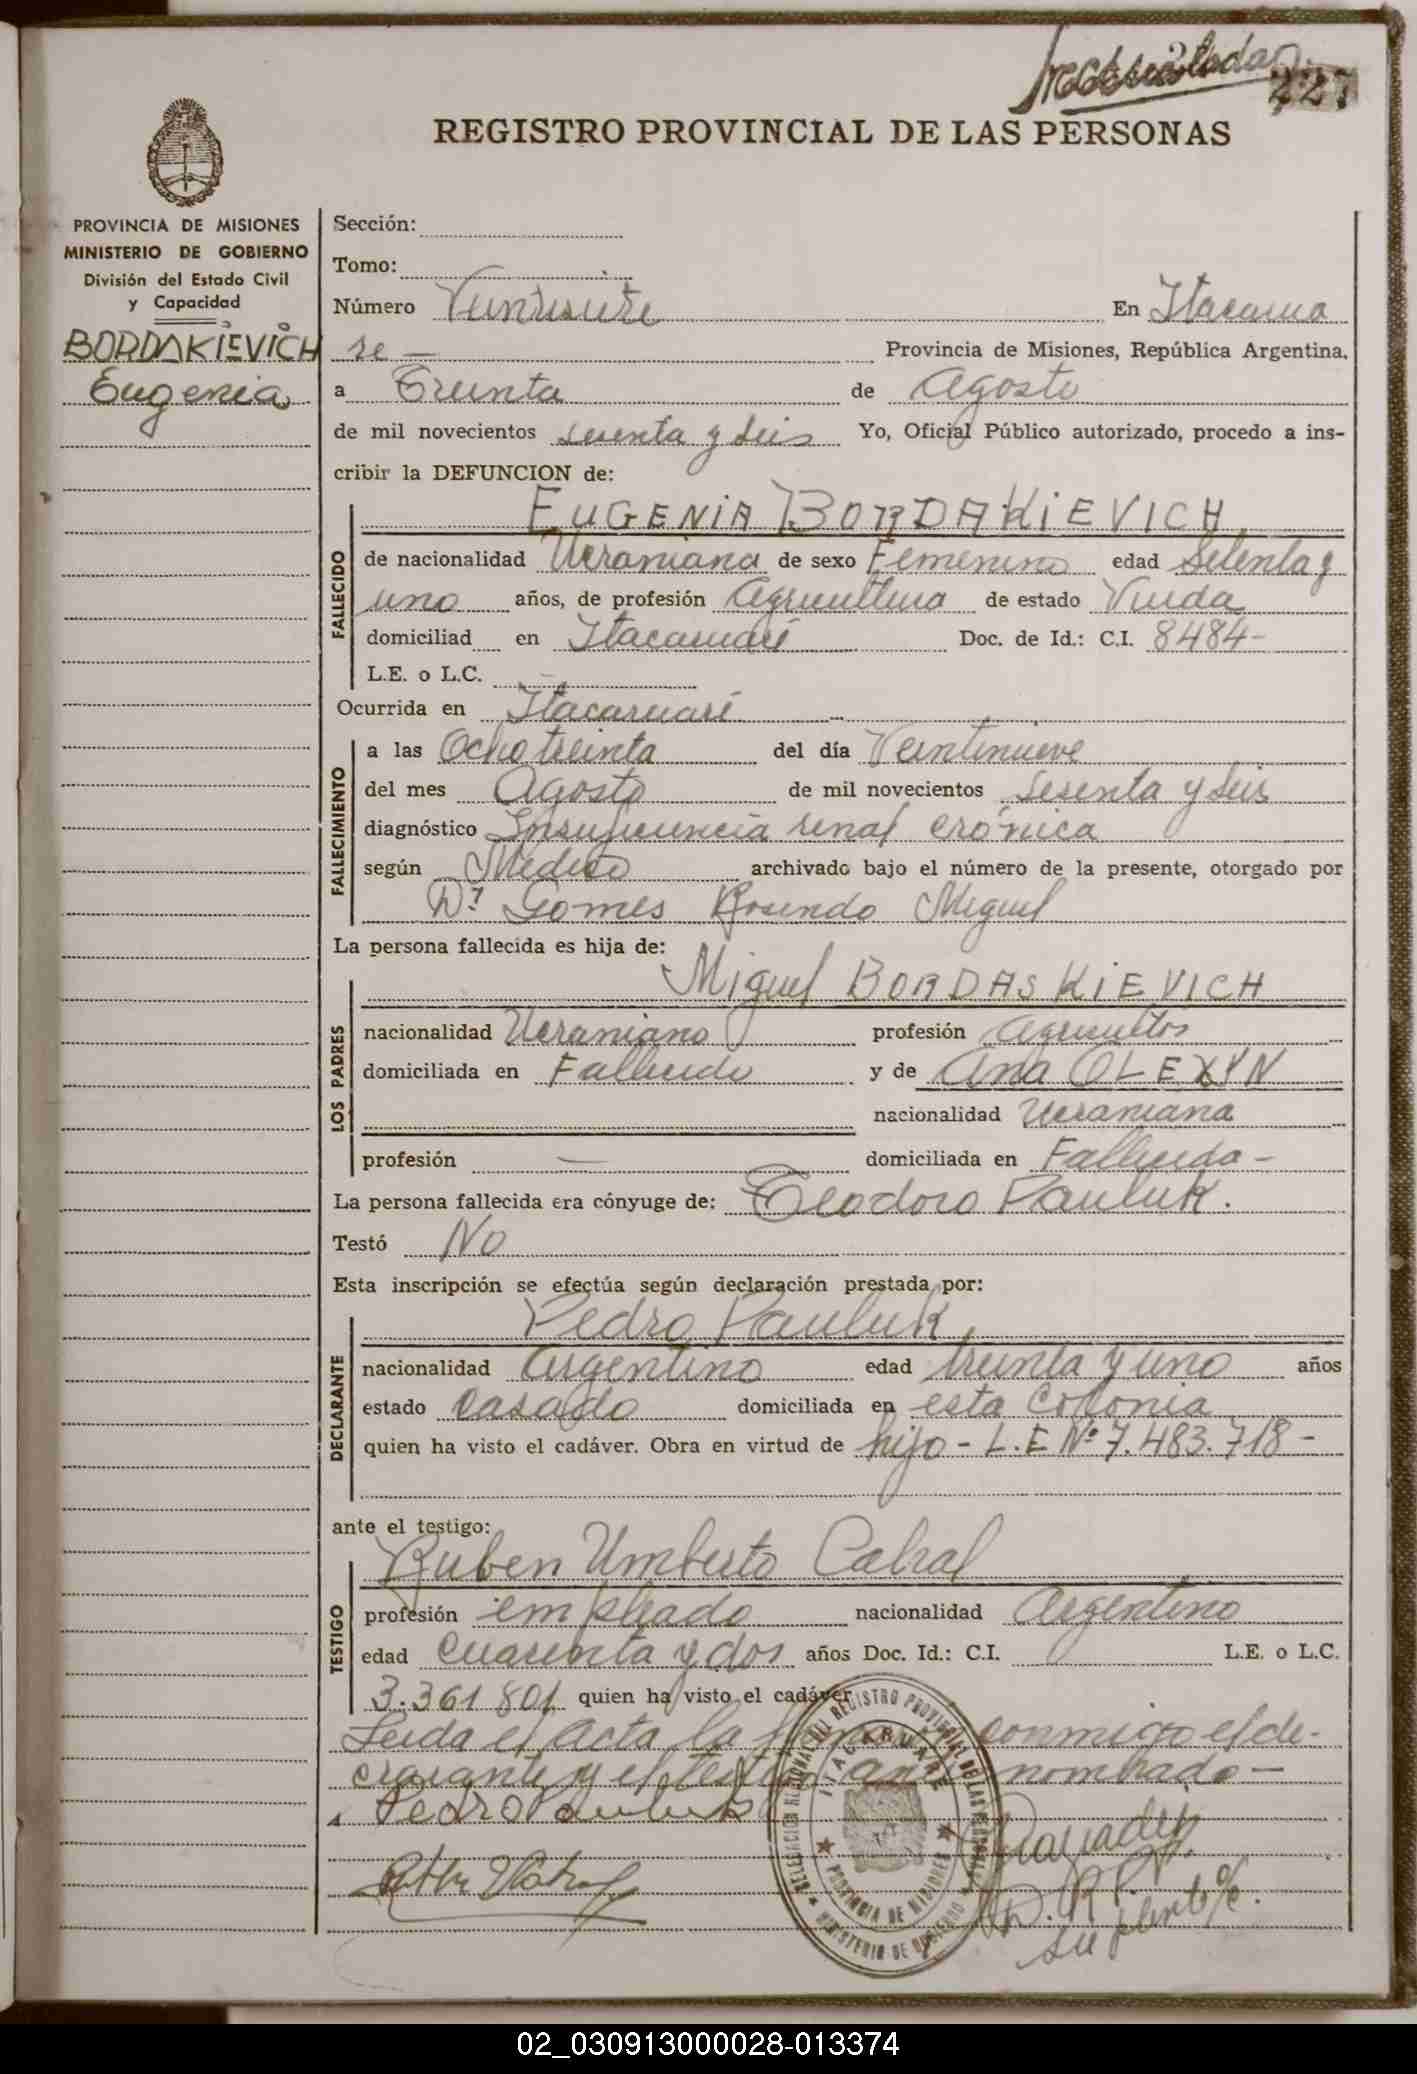 227
REGISTRO PROVINCIAL DE LAS PERSONAS
PROVINCIA DE MISIONES
MINISTERIO DE GOBIERNO
División del Estado Civil
y Capacidad
BORDAKIEVICH
Eugenia
Sección:
Tomo:
Número Veintisiete En Itacarua
re — Provincia de Misiones, República Argentina,
a Treinta de Agosto
de mil novecientos sesenta y seis Yo, Oficial Público autorizado, procedo a ins-
cribir la DEFUNCION de:
EUGENIA BORDAKIEVICH
FALLECIDO
de nacionalidad Ucraniana de sexo Femenino edad Setenta y
uno años, de profesión Agricultura de estado Viuda
domiciliad en Itacaruaré Doc. de Id.: C.I. 8484-
L.E. o L.C.
Ocurrida en Itacaruaré
FALLECIMIENTO
a las Ocho treinta del día Veintinueve
del mes Agosto de mil novecientos sesenta y seis
diagnóstico Insuficiencia renal crónica
según Medico archivado bajo el número de la presente, otorgado por
Dr. Gomes Rosendo Miguel
La persona fallecida es hija de:
Miguel BORDASKIEVICH
LOS PADRES
nacionalidad Ucraniano profesión Agricultor
domiciliada en Fallecido y de Ana OLEXYN
nacionalidad Ucraniana
profesión — domiciliada en Fallecida -
La persona fallecida era cónyuge de: Teodoro Pauluk.
Testó No
Esta inscripción se efectúa según declaración prestada por:
Pedro Pauluk
DECLARANTE
nacionalidad Argentino edad treinta y uno años
estado Casado domiciliada en esta Colonia
quien ha visto el cadáver. Obra en virtud de hijo - L.E Nº 7.483.718 -
ante el testigo:
Ruben Umberto Cabral
TESTIGO
profesión empleado nacionalidad Argentino
edad Cuarenta y dos años Doc. Id.: C.I. L.E. o L.C.
3.361 801 quien ha visto el cadáver
Leida el Acta la conmigo el de-
clarante y el testigo nombrado —
Pedro Pauluk
DELEGACION REGISTRO PROVINCIAL DE LAS PERSONAS
ITACARUARE
PROVINCIA DE MISIONES
MINISTERIO DE GOBIERNO
suplente
02_030913000028-013374